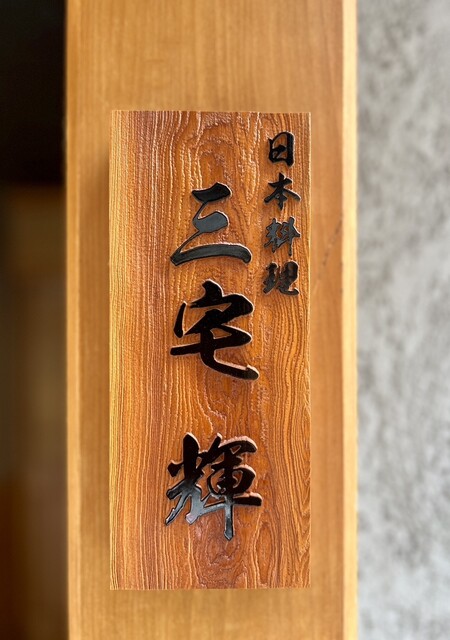 日本料理
三宅輝